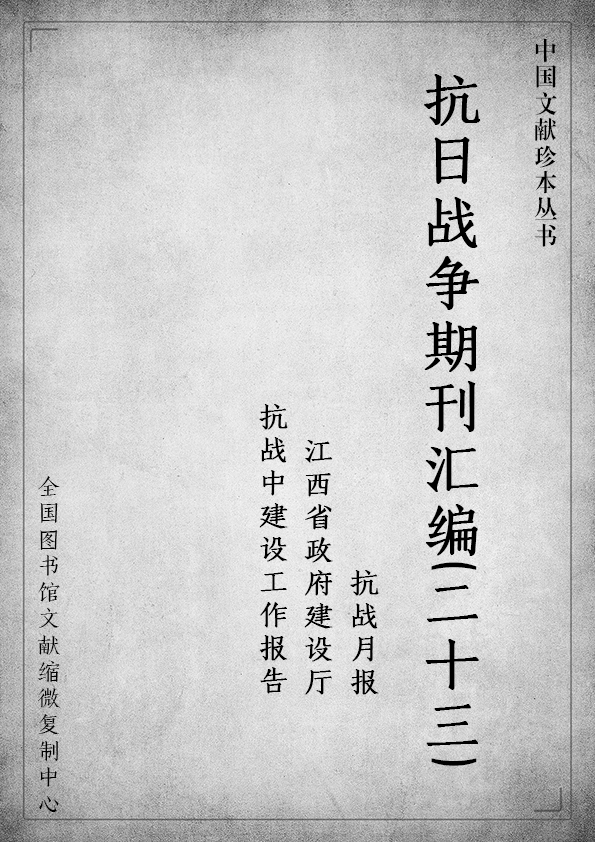 中国文献珍本丛书
抗日战争期刊汇编(二十三)
抗战月报
江西省政府建设厅
抗战中建设工作报告
全国图书馆文献缩微复制中心